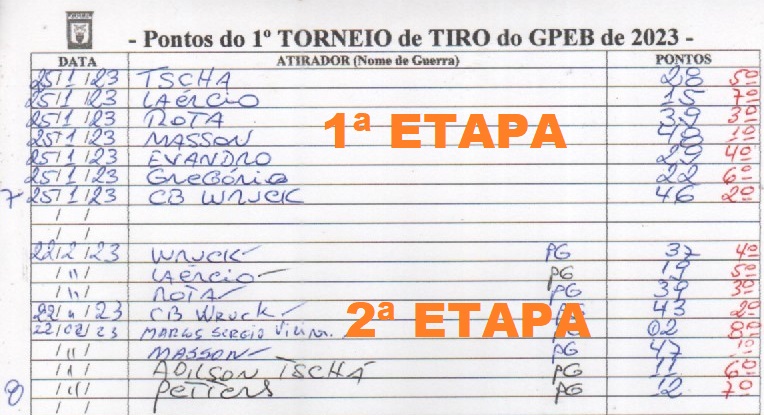 - Pontos do 1º TORNEIO de TIRO do GPEB de 2023 -
DATA ATIRADOR (Nome de Guerra) PONTOS
25/1/23 TSCHA 28 5º
25/1/23 LAÉRCIO 15 7º
25/1/23 ROTA 39 3º
1ª ETAPA
25/1/23 MASSON 48 1º
25/1/23 EVANDRO 29 4º
25/1/23 GREGÓRIO 22 6º
7 25/1/23 CB WRUCK 46 2º
/ /
/ /
22/2/23 WRUCK PG 37 4º
/ " / LAÉRCIO PG 19 5º
/ " / ROTA PG 39 3º
22/ " /23 CB WRUCK PG 43 2º
2ª ETAPA
22/02/23 MARCOS SERGIO VIEIRA. PG 02 8º
/ " / MASSON PG 47 1º
/ " / ADILSON TSCHÁ PG 11 6º
8 / " / PETTERS PG 12 7º
/ /